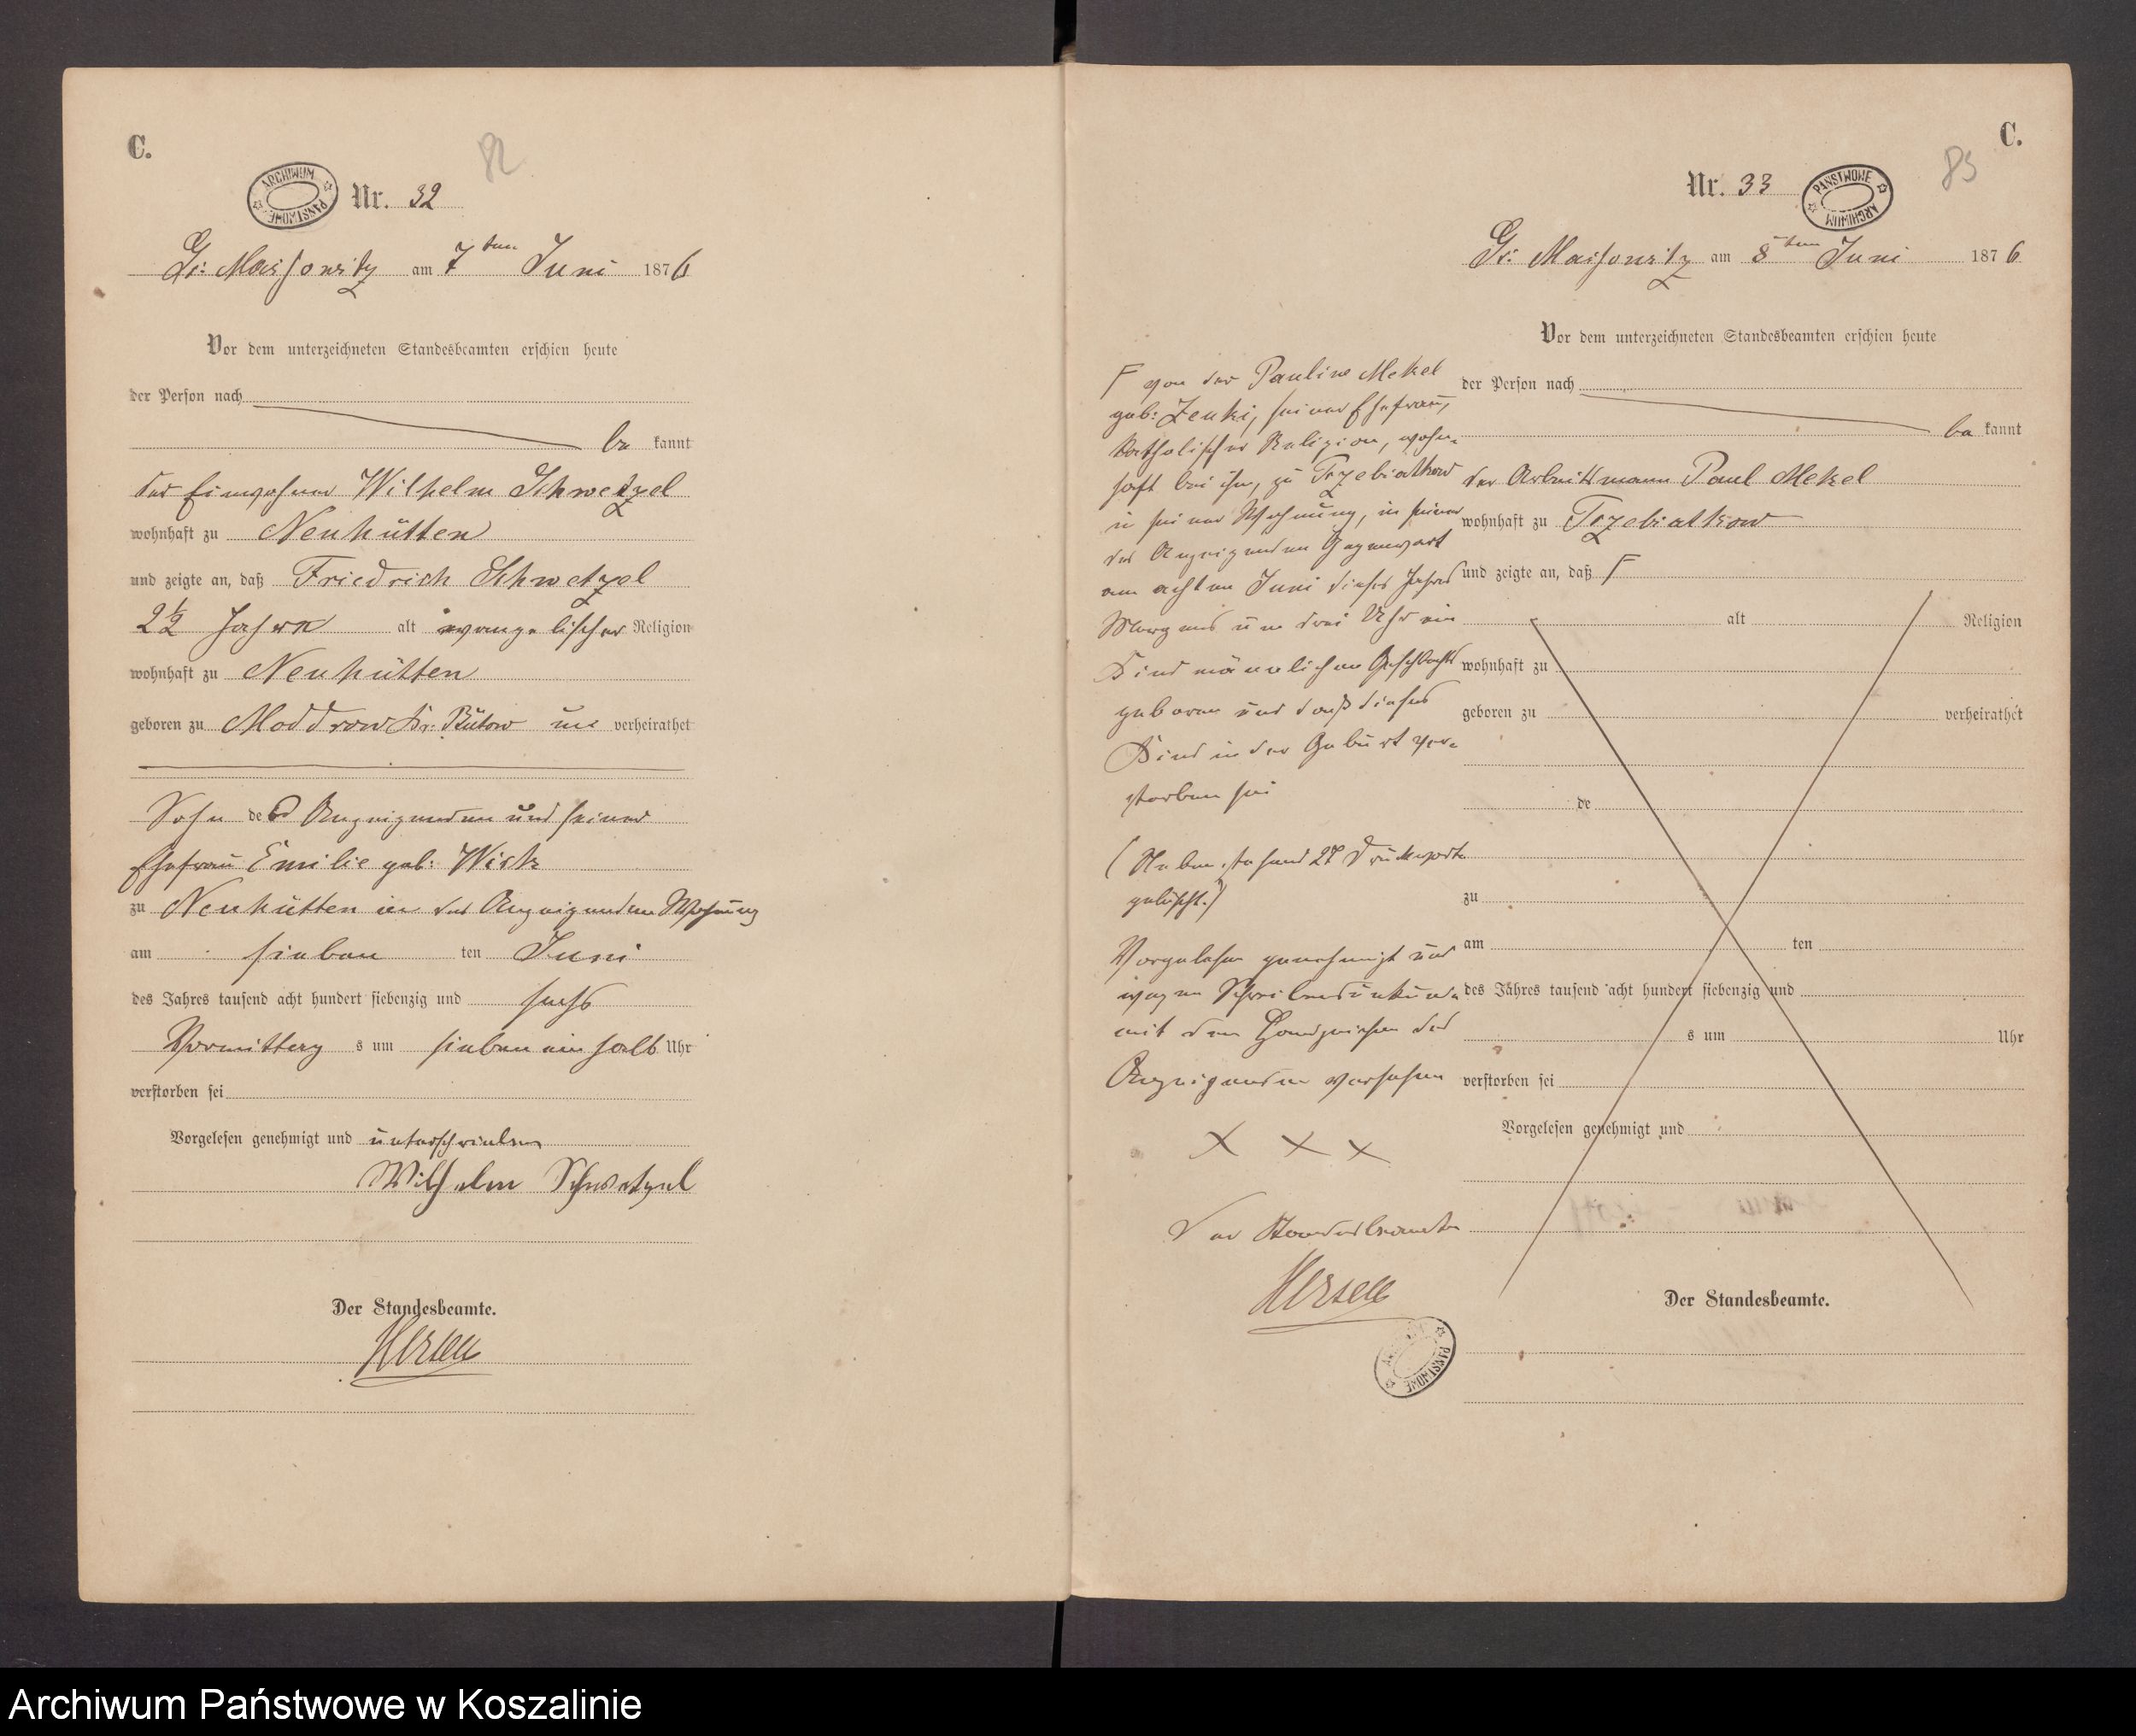 C.
82
ARCHIWUM PAŃSTWOWE
Nr. 32
Gr: Massowitz am 7ten Juni 1876
Vor dem unterzeichneten Standesbeamten erschien heute
der Person nach
be kannt
der Einwohner Wilhelm Schwetzel
wohnhaft zu Neuhütten
und zeigte an, daß Friedrich Schwetzel
2½ Jahre alt evangelischer Religion
wohnhaft zu Neuhütten
geboren zu Moddrow Kr: Bütow un verheirathet
Sohn des Anzeigenden und seiner
Ehefrau Emilie geb:
zu Neuhütten in des Anzeigenden Wohnung
am sieben ten Juni
des Jahres tausend acht hundert siebenzig und sechs
Vormittag s um sieben ein halb Uhr
verstorben sei
Vorgelesen genehmigt und unterschrieben
Wilhelm Schwetzel
Der Standesbeamte.
C.
83
Nr. 33
PAŃSTWOWE ARCHIWUM
Gr: Massowitz am 8ten Juni 1876
Vor dem unterzeichneten Standesbeamten erschien heute
der Person nach
be kannt
der Arbeitsmann Paul Mekel
wohnhaft zu Trzebiatkow
und zeigte an, daß F
alt Religion
wohnhaft zu
geboren zu verheirathet
de
zu
am ten
des Jahres tausend acht hundert siebenzig und
s um Uhr
verstorben sei
Vorgelesen genehmigt und
Der Standesbeamte.
F von der Pauline Mekel
geb: Zenki, seiner Ehefrau,
katholischer Religion, wohn-
haft bei ihm, zu Trzebiatkow
in seiner Wohnung, in seiner
des Anzeigenden Gegenwart
am achten Juni dieses Jahres
Morgens um drei Uhr ein
Kind männlichen Geschlechts
geboren und daß dieses
Kind in der Geburt ver-
storben sei
(Nebenstehend 27 Druckworte
gelöscht.)
Vorgelesen genehmigt und
wegen Schreibensunkunde
mit dem Handzeichen des
Anzeigenden versehen
X X X
Der Standesbeamte
ARCHIWUM PAŃSTWOWE
Archiwum Państwowe w Koszalinie